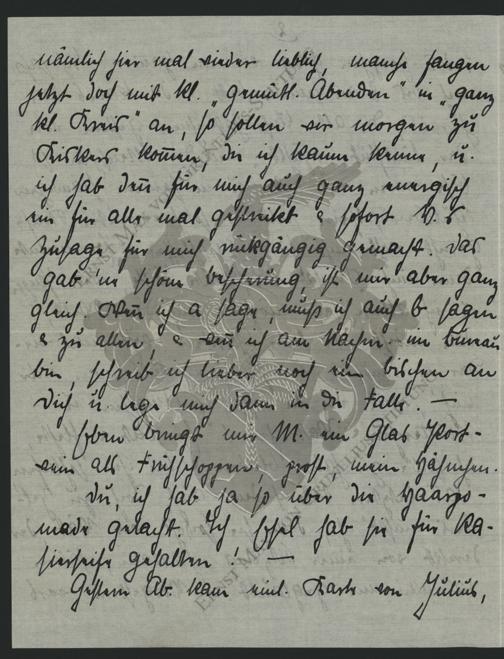 nämlich hier mal wieder lieblich, manche fangen
jetzt doch mit kl. "gemütl. Abenden" in "ganz
kl. Kreis" an, so sollen wir morgen zu
Kiskers kom̄en, die ich kaum kenne, u.
ich hab den̄ für mich auch ganz energisch
ein für alle mal gestreikt & sofort V.s
Zusage für mich rückgängig gemacht. Das
gab 'ne schöne Bescherung, ist mir aber ganz
gleich. Wen̄ ich a sage, muß ich auch b sagen
& zu allen & wen̄ ich am Nachm. im Bureau
bin, schreib ich lieber noch ein bischen an
Dich u. lege mich dann in die Falle. —
Eben bringt mir M. ein Glas Port-
wein als Frühschoppen, prost mein Hähnchen.
Du, ich hab ja so über die Haarpo-
made gelacht. Ich Esel hab sie für Ra-
sierseife gehalten! —
Gestern Ab. kam eine Karte von Julius,